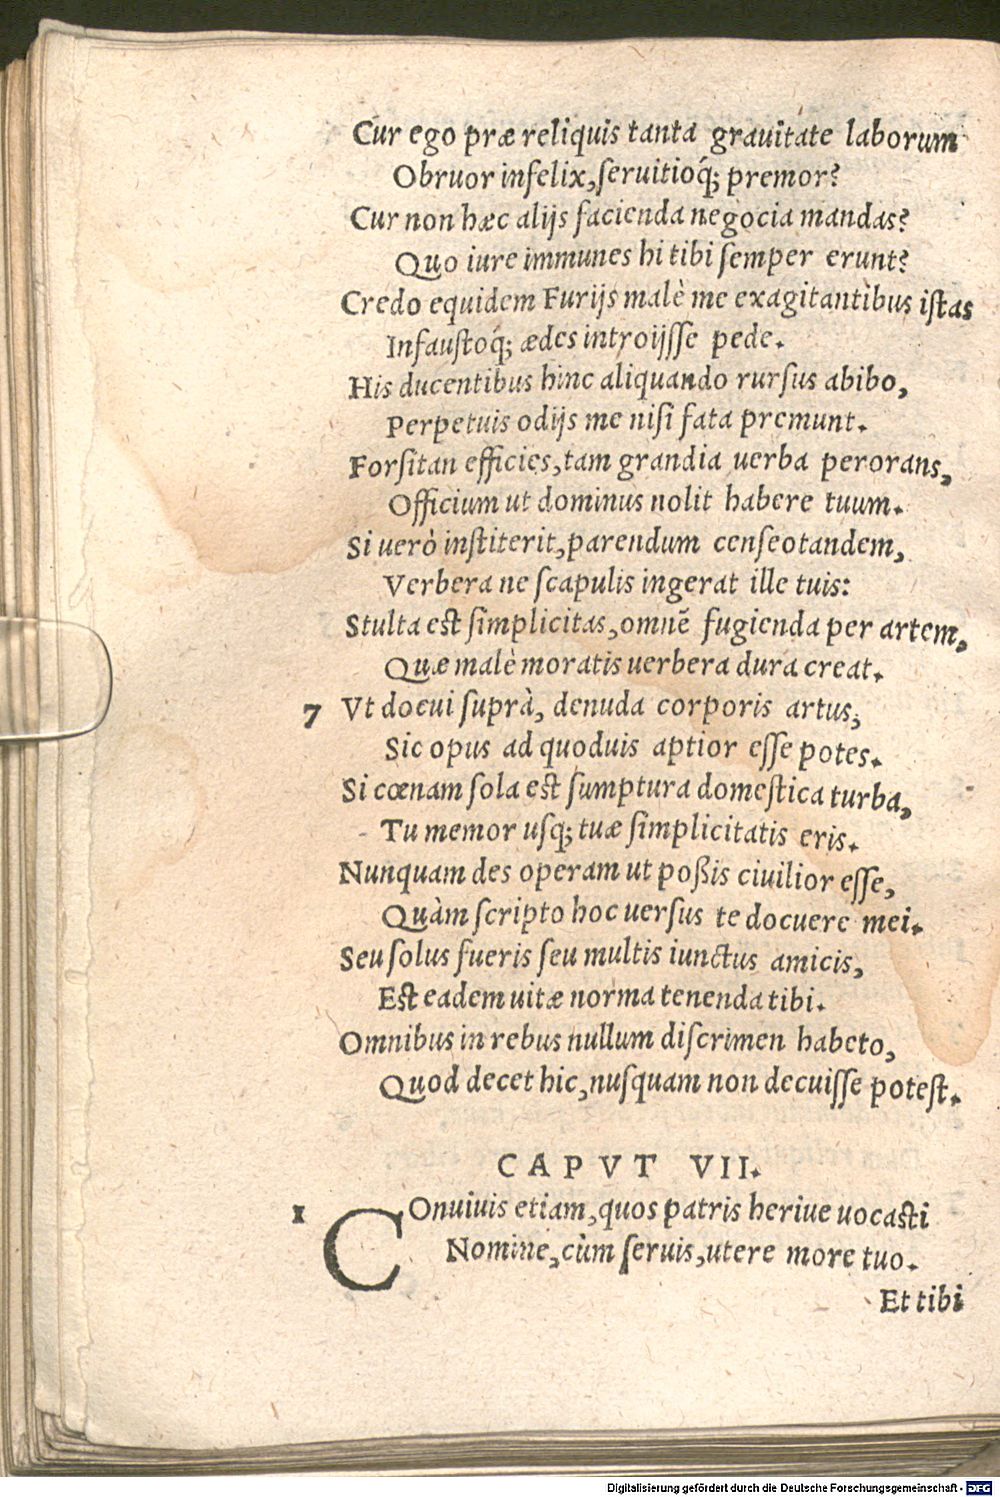 Cur ego præ reliquis tanta grauitate laborum
Obruor infelix, ſeruitioq́; premor?
Cur non hæc alijs facienda negocia mandas?
Quo iure immunes hi tibi ſemper erunt?
Credo equidem Furijs malè me exagitantibus iſtas
Infauſtoq́; ædes introijſſe pede.
His ducentibus hinc aliquando rurſus abibo,
Perpetuis odijs me niſi fata premunt.
Forſitan efficies, tam grandia uerba perorans,
Officium ut dominus nolit habere tuum.
Si uerò inſtiterit, parendum cenſeo tandem,
Verbera ne ſcapulis ingerat ille tuis:
Stulta eſt ſimplicitas, omnẽ fugienda per artem,
Quæ malè moratis uerbera dura creat.
7 Vt docui ſuprà, denuda corporis artus;
Sic opus ad quoduis aptior eſſe potes.
Si cœnam ſola eſt ſumptura domeſtica turba,
Tu memor uſq; tuæ ſimplicitatis eris.
Nunquam des operam ut poßis ciuilior eſſe,
Quàm ſcripto hoc uerſus te docuere mei.
Seu ſolus fueris ſeu multis iunctus amicis,
Eſt eadem uitæ norma tenenda tibi.
Omnibus in rebus nullum diſcrimen habeto,
Quod decet hic, nuſquam non decuiſſe poteſt.
CAPVT VII.
1 COnuiuis etiam, quos patris heriue uocaſti
Nomine, cùm ſeruis, utere more tuo.
Et tibi
Digitalisierung gefördert durch die Deutsche Forschungsgemeinschaft - DFG